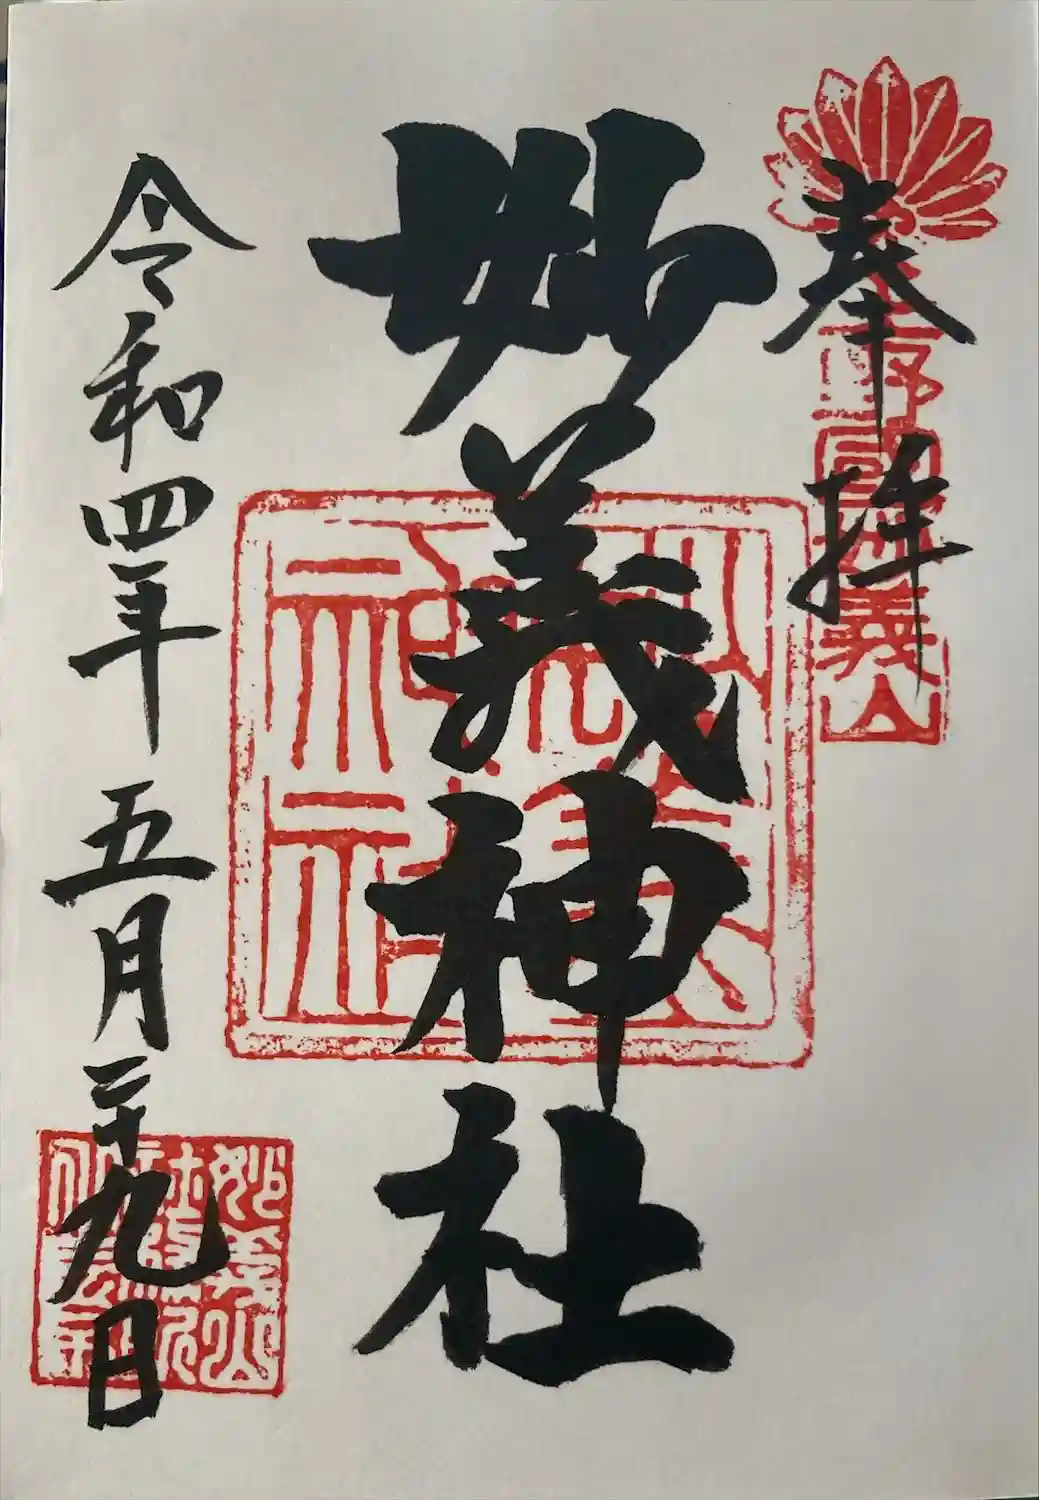 奉拝
上野國妙義山
妙義神社
妙義神社
令和四年五月二十九日